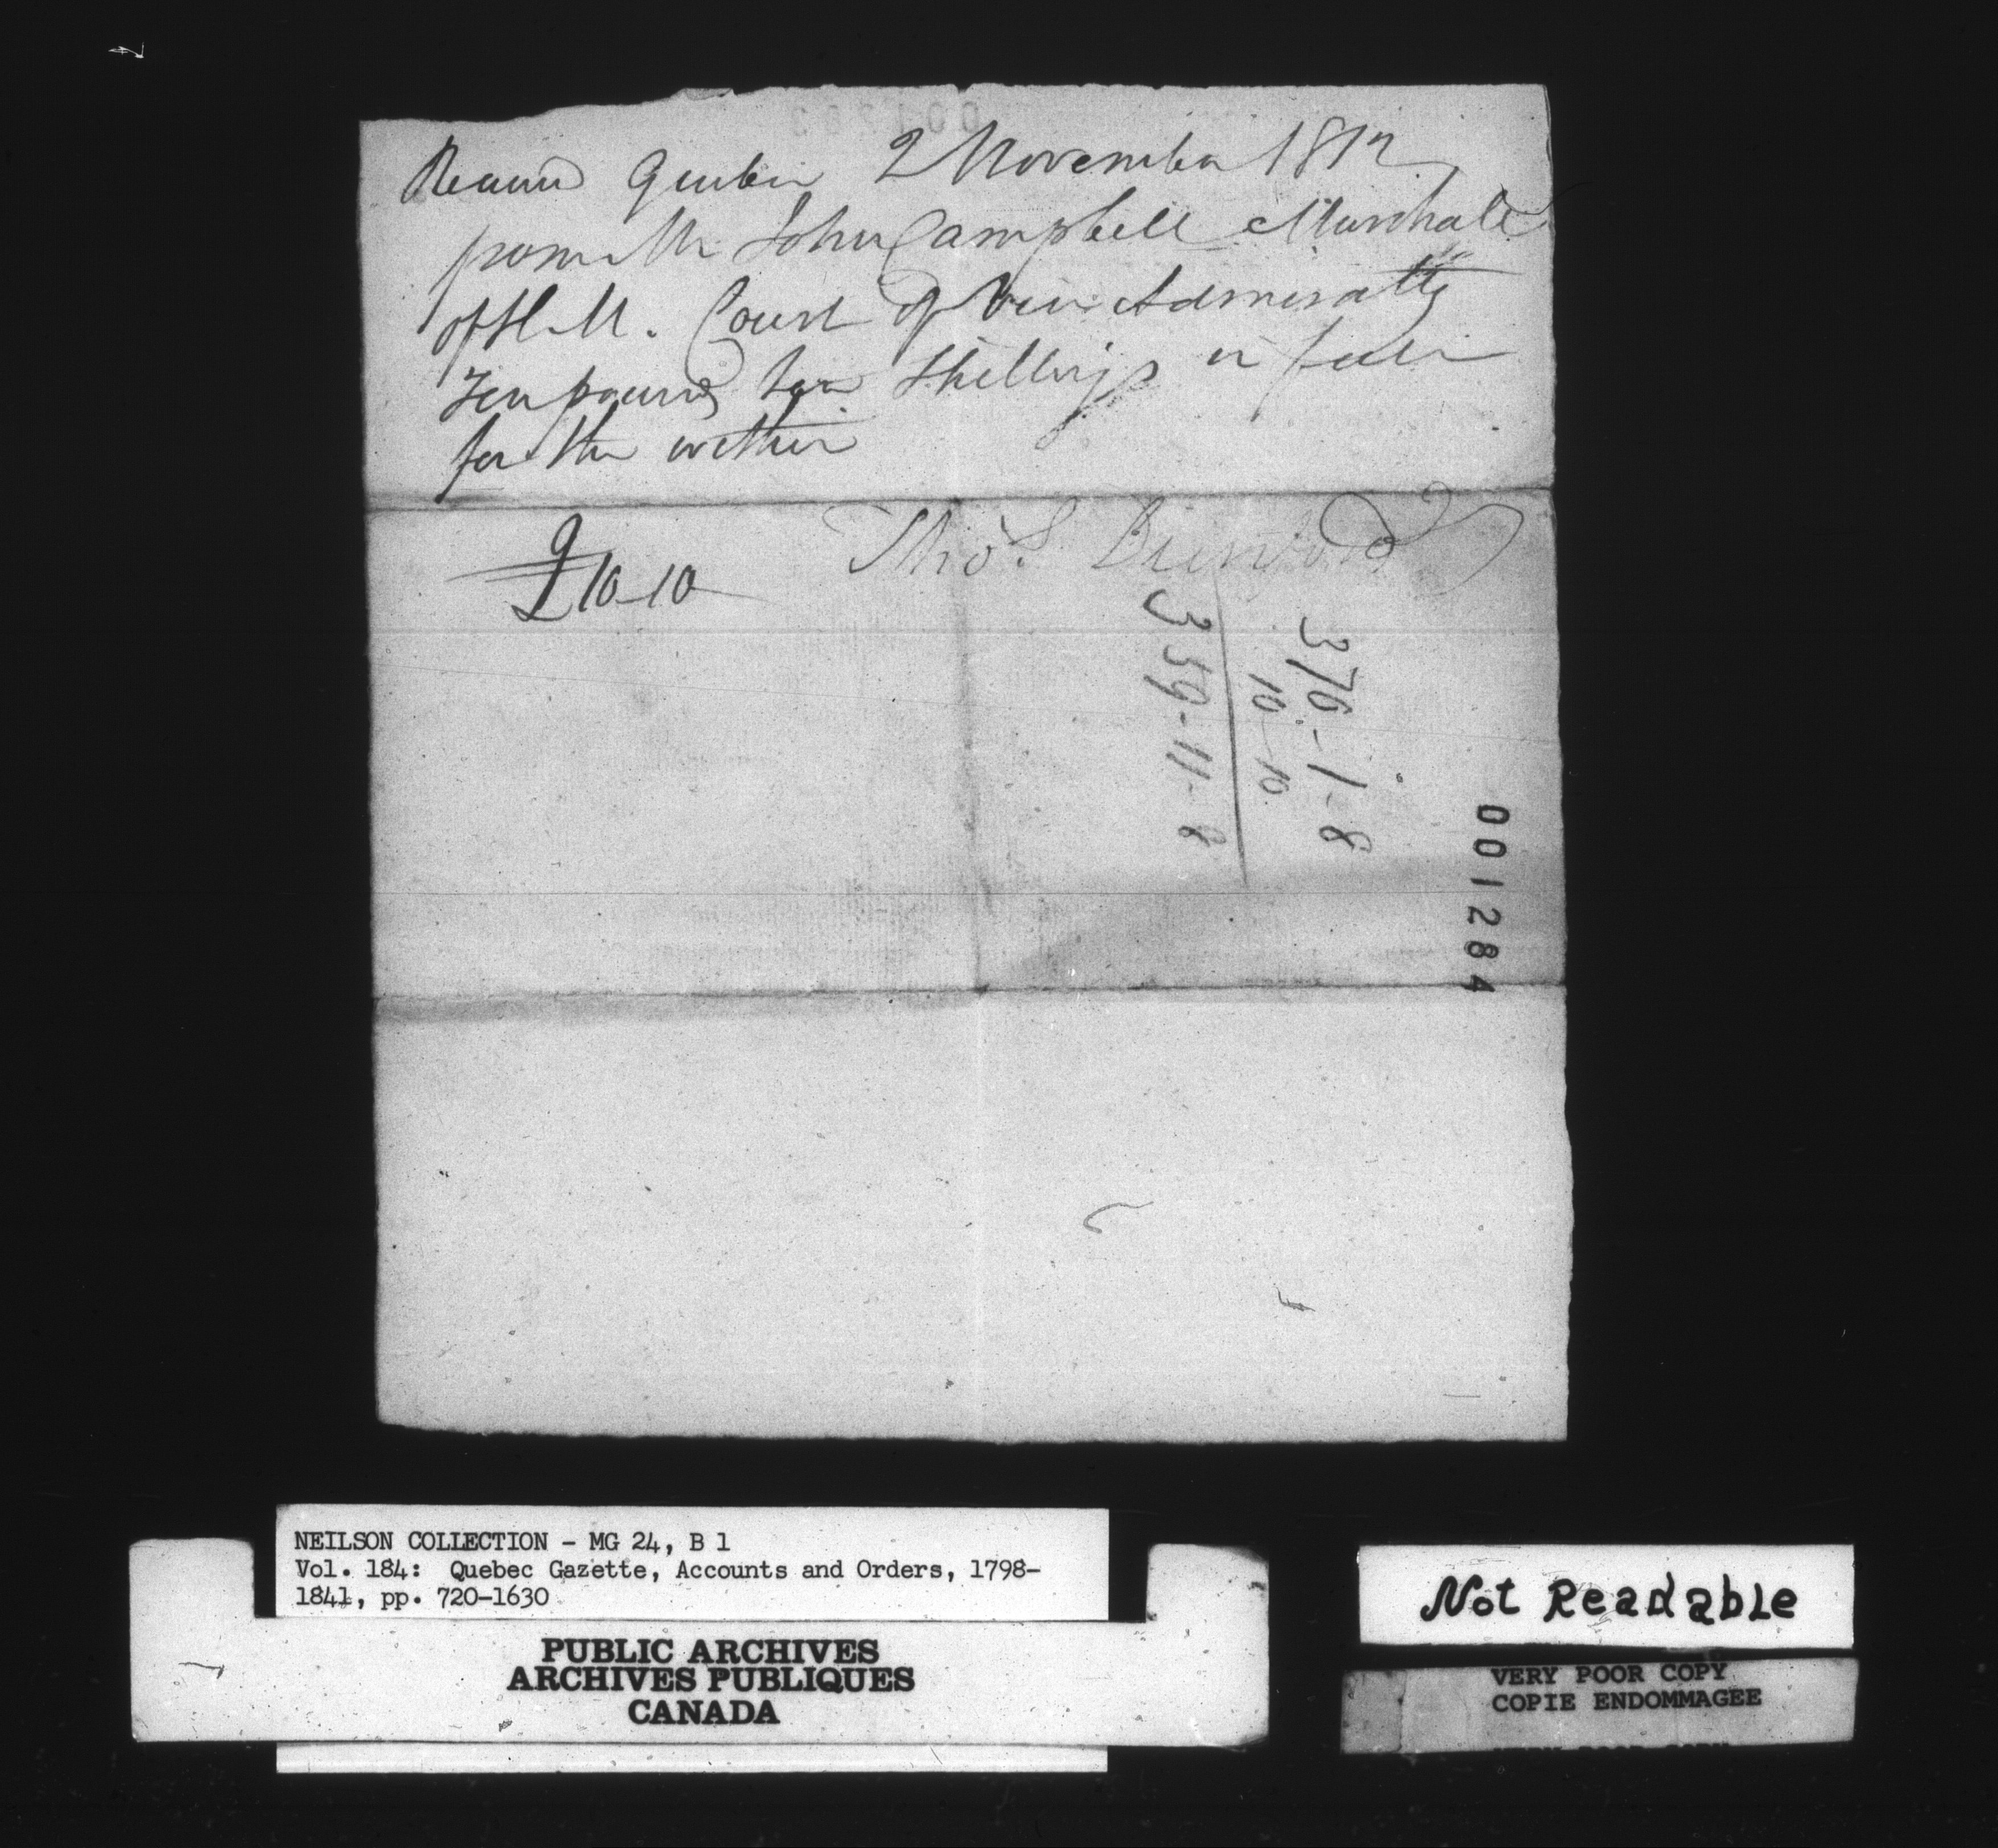 Received Quebec 2 November 1812
from Mr John Campbell Marshall
of H. M. Court of Vice Admiralty
Ten pound ten Shillings in full
for the within
£10-10
Thos.
376-1-8
10-10
359-11-8
001284
NEILSON COLLECTION - MG 24, B 1
Vol. 184: Quebec Gazette, Accounts and Orders, 1798-
1841, pp. 720-1630
PUBLIC ARCHIVES
ARCHIVES PUBLIQUES
CANADA
Not Readable
VERY POOR COPY
COPIE ENDOMMAGEE